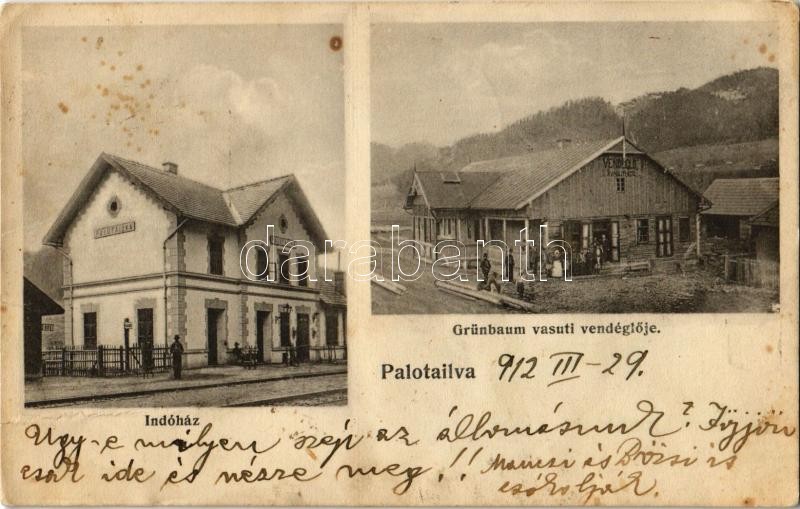 PALOTAILVA
VENDÉGLŐ
Grünbaum vasuti vendéglője.
Palotailva 912 III-29.
Indóház
Ugy-e milyen szép az állomásunk? Jöjjön
csak ide és nézze meg!! Mancsi és Bözsi is
csókolják.
darabanth.com